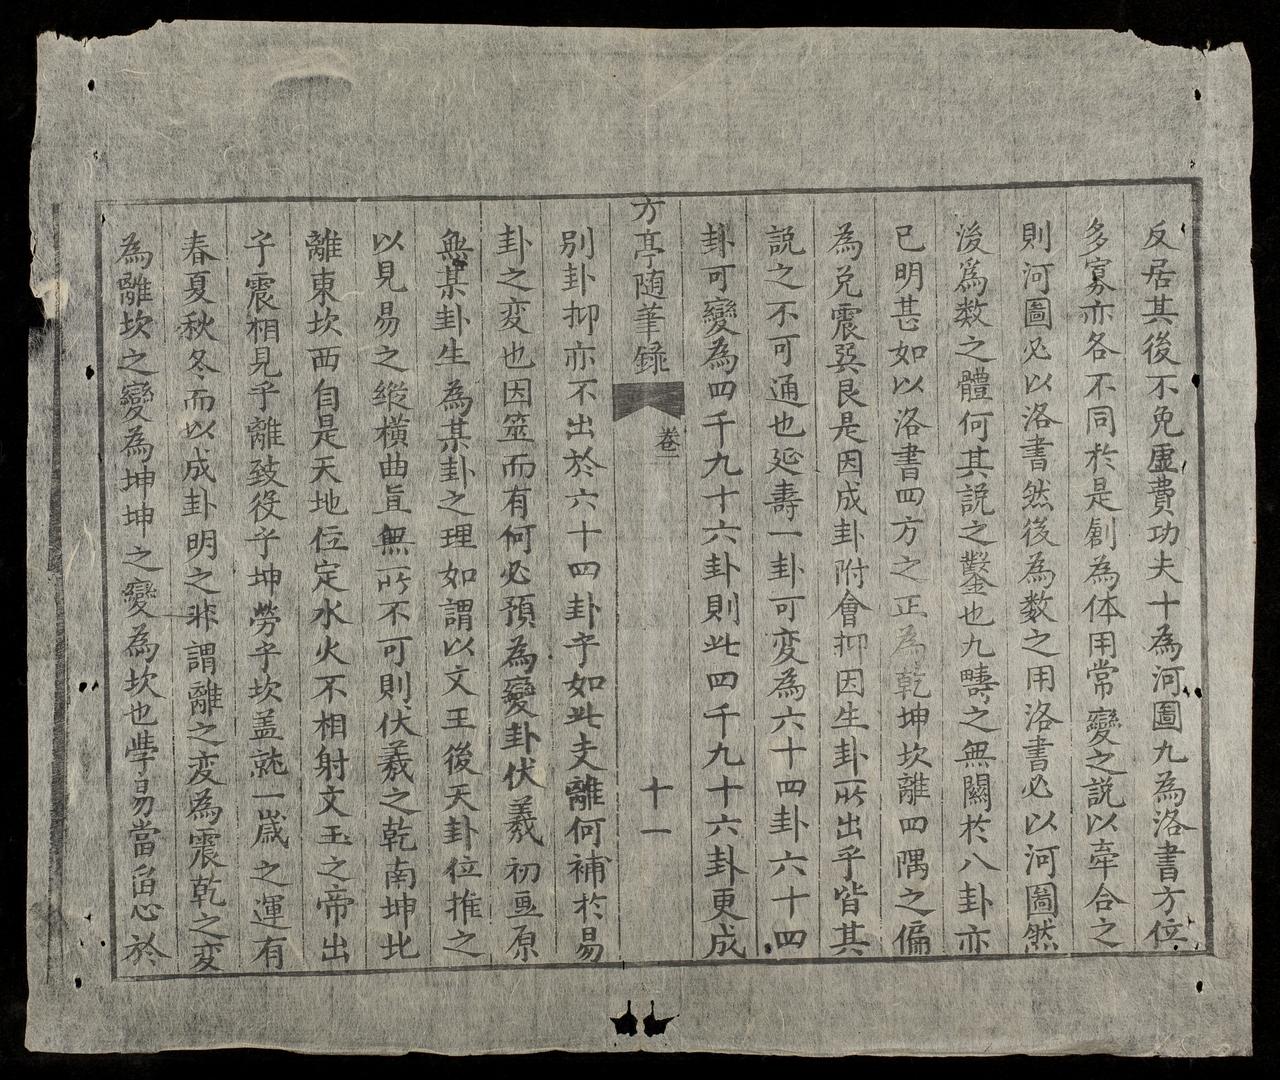 反居其後不免虛費功夫十為河圖九為洛書方位
多寡亦各不同於是創為体用常變之説以牽合之
則河圖必以洛書然後為数之用洛書必以河圖然
後爲数之體何其説之鑿也九疇之無關於八卦亦
已明甚如以洛書四方之正為乾坤坎離四隅之偏
為兌震巽艮是因成卦附會抑因生卦所出乎皆其
説之不可通也延壽一卦可変為六十四卦六十四
卦可變為四千九十六卦則此四千九十六卦更成
方亭随筆錄
卷一
十一
別卦抑亦不出於六十四卦乎如此支離何補於易
卦之変也因筮而有何必預為變卦伏羲初畫原
無某卦生為某卦之理如謂以文王後天卦位推之
以見易之縱橫曲直無所不可則伏羲之乾南坤北
離東坎西自是天地位定水火不相射文王之帝出
乎震相見乎離致役乎坤勞乎坎盖就一歲之運有
春夏秋冬而以成卦明之非謂離之変為震乾之変
為離坎之變為坤坤之變為坎也學易當留心於